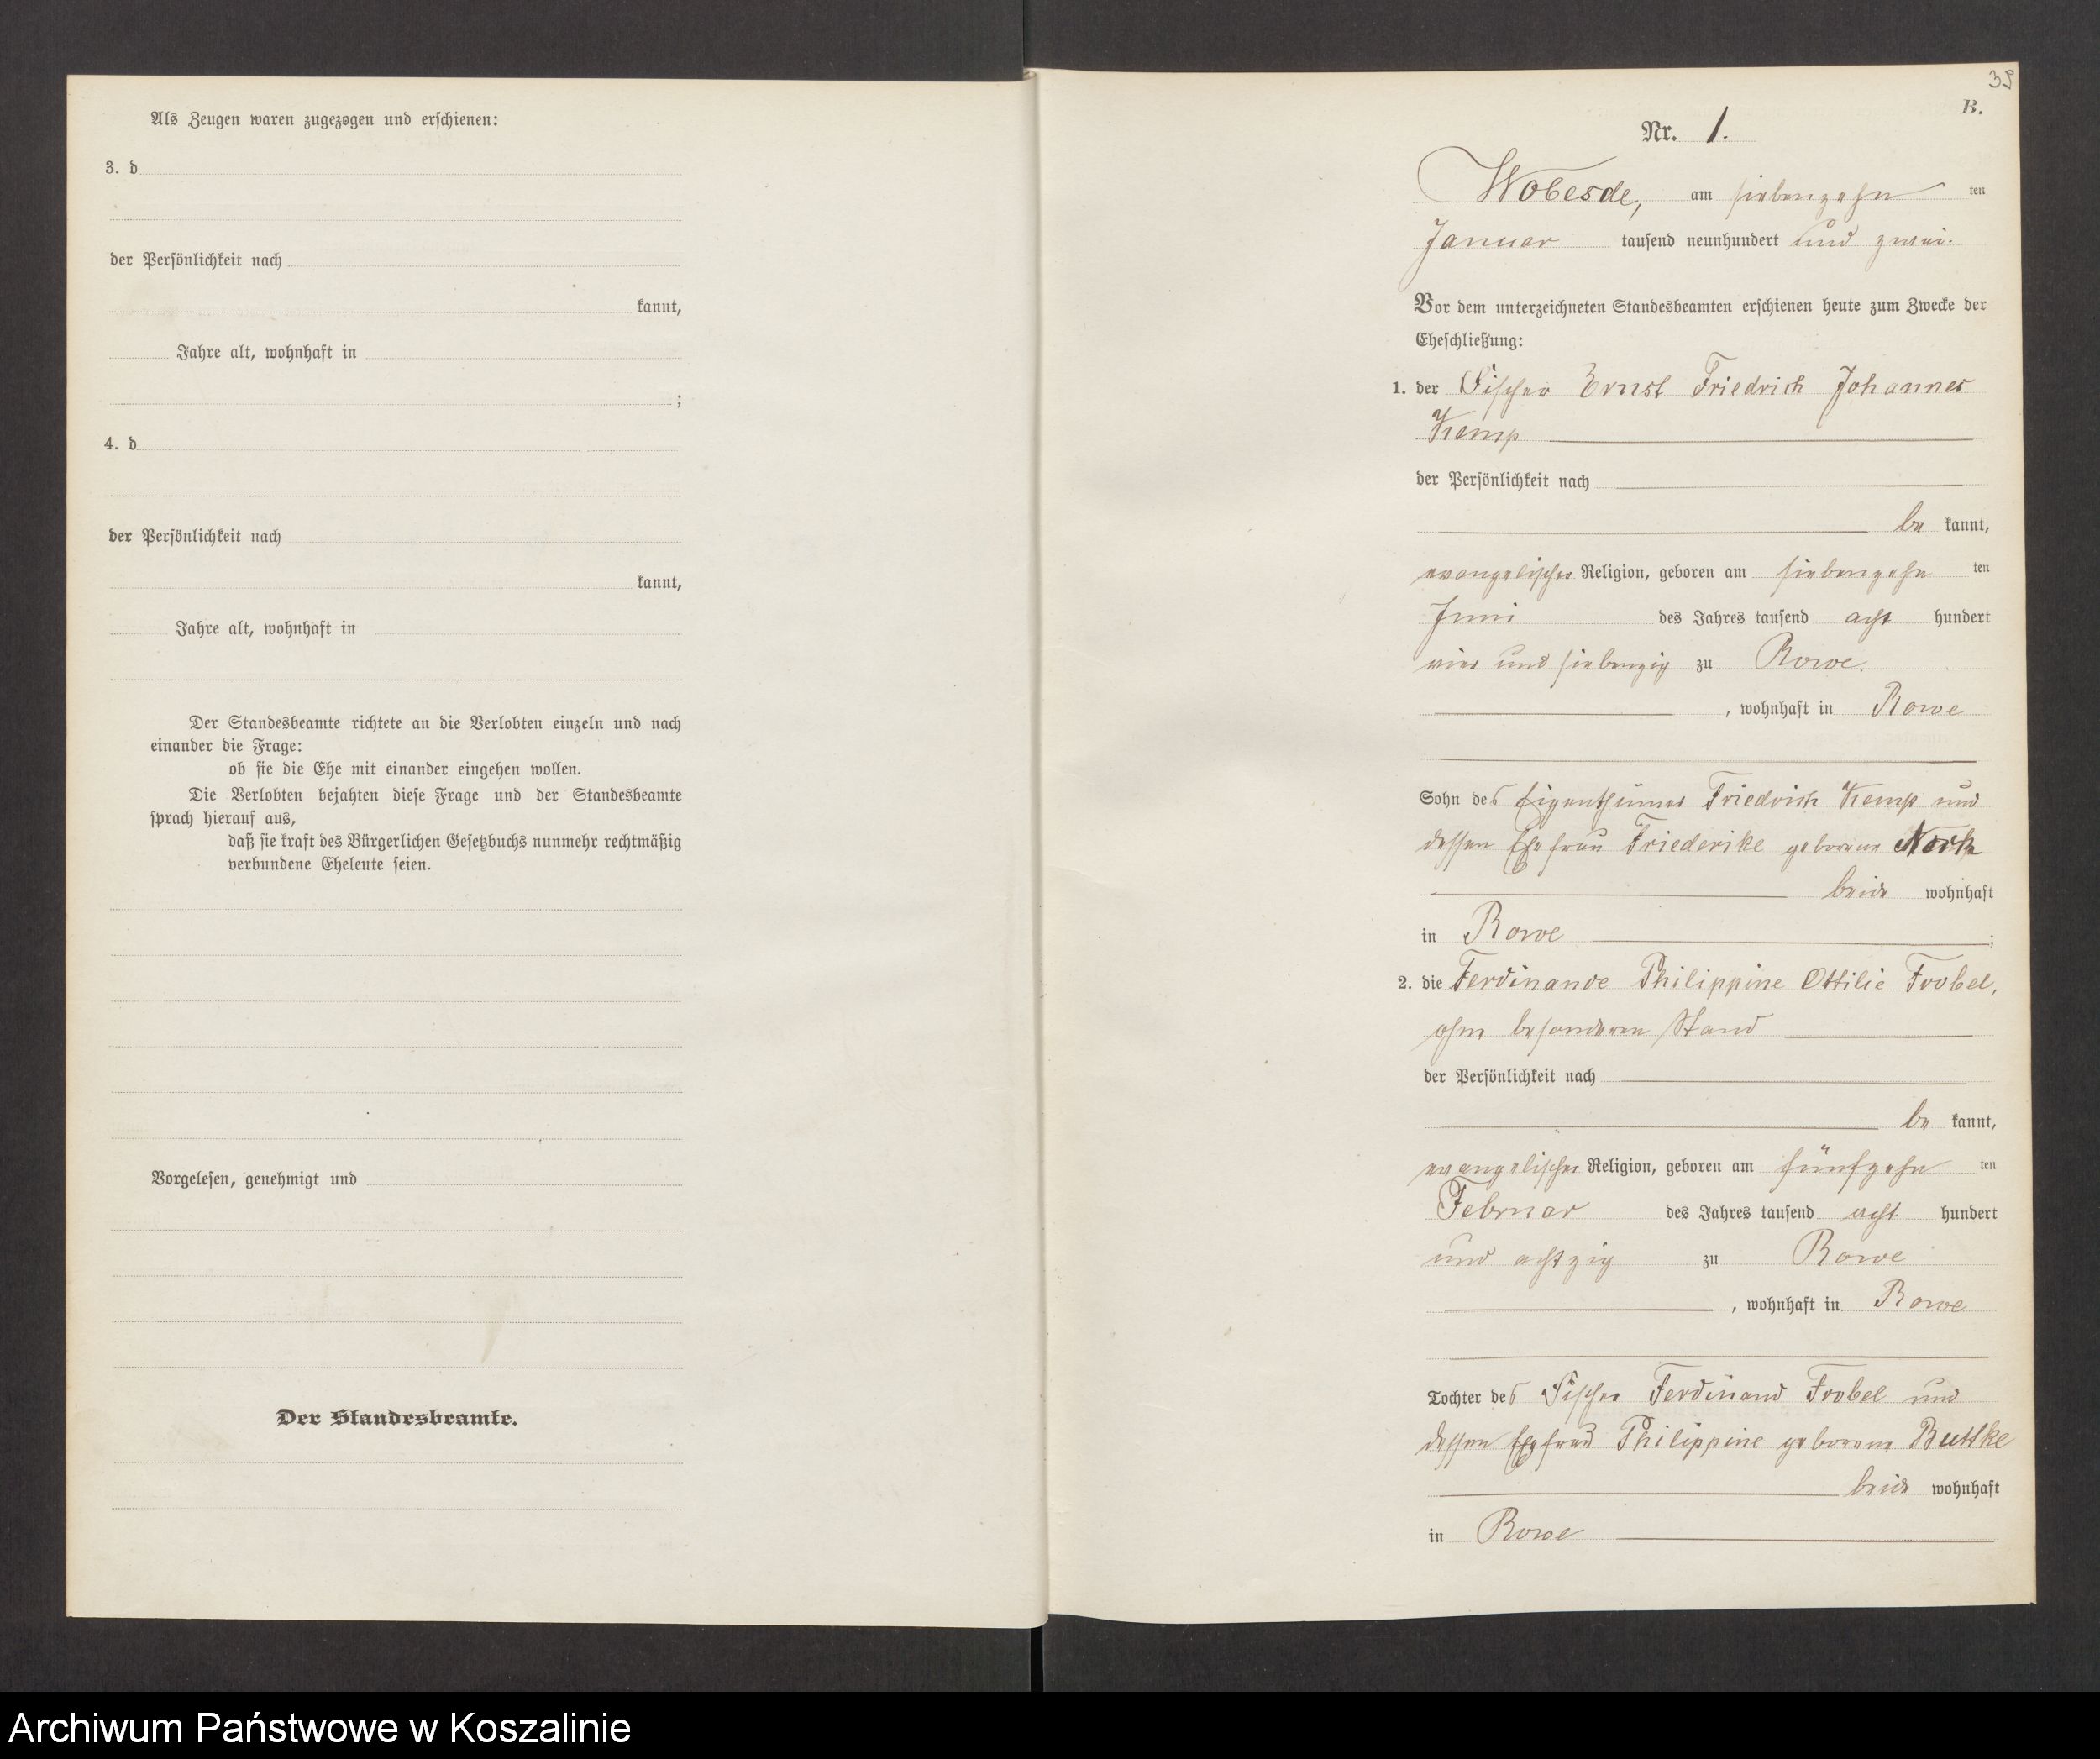 Als Zeugen waren zugezogen und erschienen:
3. d
der Persönlichkeit nach
kannt,
Jahre alt, wohnhaft in
;
4. d
der Persönlichkeit nach
kannt,
Jahre alt, wohnhaft in
Der Standesbeamte richtete an die Verlobten einzeln und nach
einander die Frage:
ob sie die Ehe mit einander eingehen wollen.
Die Verlobten bejahten diese Frage und der Standesbeamte
sprach hierauf aus,
daß sie kraft des Bürgerlichen Gesetzbuchs nunmehr rechtmäßig
verbundene Eheleute seien.
Vorgelesen, genehmigt und
Der Standesbeamte.
39
B.
Nr. 1.
Wobesde, am siebenzehn ten
Januar tausend neunhundert und zwei.
Vor dem unterzeichneten Standesbeamten erschienen heute zum Zwecke der
Eheschließung:
1. der Fischer Ernst Friedrich Johannes
Kemp
der Persönlichkeit nach
be kannt,
evangelischer Religion, geboren am siebenzehn ten
Juni des Jahres tausend acht hundert
vier und siebenzig zu Rowe.
, wohnhaft in Rowe
Sohn des Eigenthümers Friedrich Kemp und
dessen Ehefrau Friederike geborene
beide wohnhaft
in Rowe ;
2. die Ferdinande Philippine Ottilie Frobel,
ohne besonderen Stand
der Persönlichkeit nach
be kannt,
evangelischer Religion, geboren am fünfzehn ten
Februar des Jahres tausend acht hundert
und achtzig zu Rowe
, wohnhaft in Rowe
Tochter des Fischer Ferdinand Frobel und
dessen Ehefrau Philippine geborene Buttke
beide wohnhaft
in Rowe
Archiwum Państwowe w Koszalinie